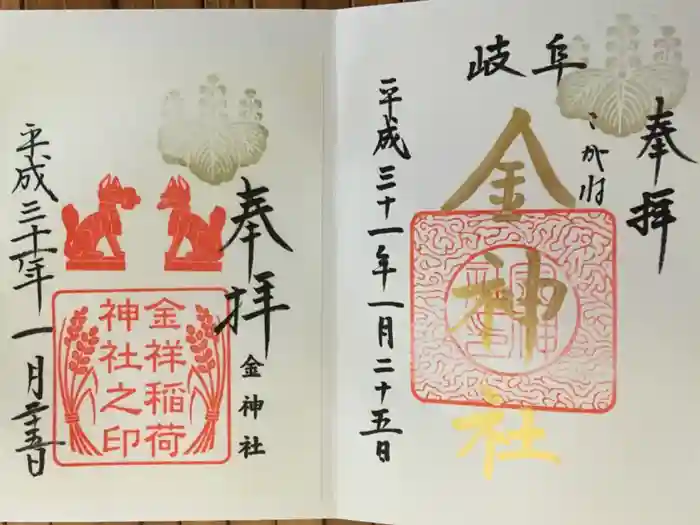 奉拝
岐阜
こがね
金神社
平成三十一年一月二十五日
奉拝
金神社
金祥稲荷
神社之印
平成三十一年一月二十五日